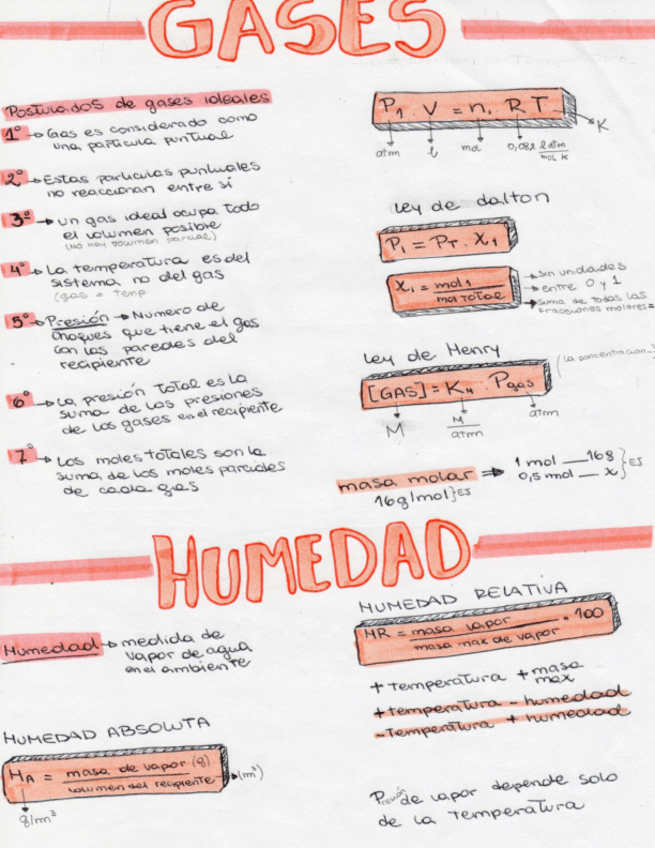 GASES
Postulados de gases ideales
1º → Gas es considerado como
una partícula puntual
2º → Estas partículas puntuales
no reaccionan entre sí
3º → un gas ideal ocupa todo
el volumen posible
(no hay volumen parcial)
4º → La temperatura es del
sistema, no del gas
(gas = Temp
5º → Presión → Numero de
choques que tiene el gas
con las paredes del
recipiente
6º → La presión total es la
suma de las presiones
de los gases en el recipiente
7º → Los moles totales son la
suma de los moles parciales
de cada gas
P₁ . V = n₁ R T → K
atm l mol 0,082 l atm
mol K
Ley de dalton
P₁ = P_T . X₁
X₁ = mol₁
mol total
→ sin unidades
→ entre 0 y 1
→ suma de todas las
fracciones molares =
Ley de Henry
(la concentracion...)
[GAS] = K_H . Pgas
M M
atm
atm
masa molar ⇒ 1 mol — 16g } EJ
16g/mol } EJ 0,5 mol — x
HUMEDAD
Humedad → medida de
vapor de agua
en el ambiente
HUMEDAD ABSOLUTA
H_A = masa de vapor (g)
volumen del recipiente → (m³)
g/m³
HUMEDAD RELATIVA
HR = masa vapor · 100
masa max de vapor
+ temperatura + masa
max
+ temperatura - humedad
- Temperatura + humedad
Presión de vapor depende solo
de la temperatura